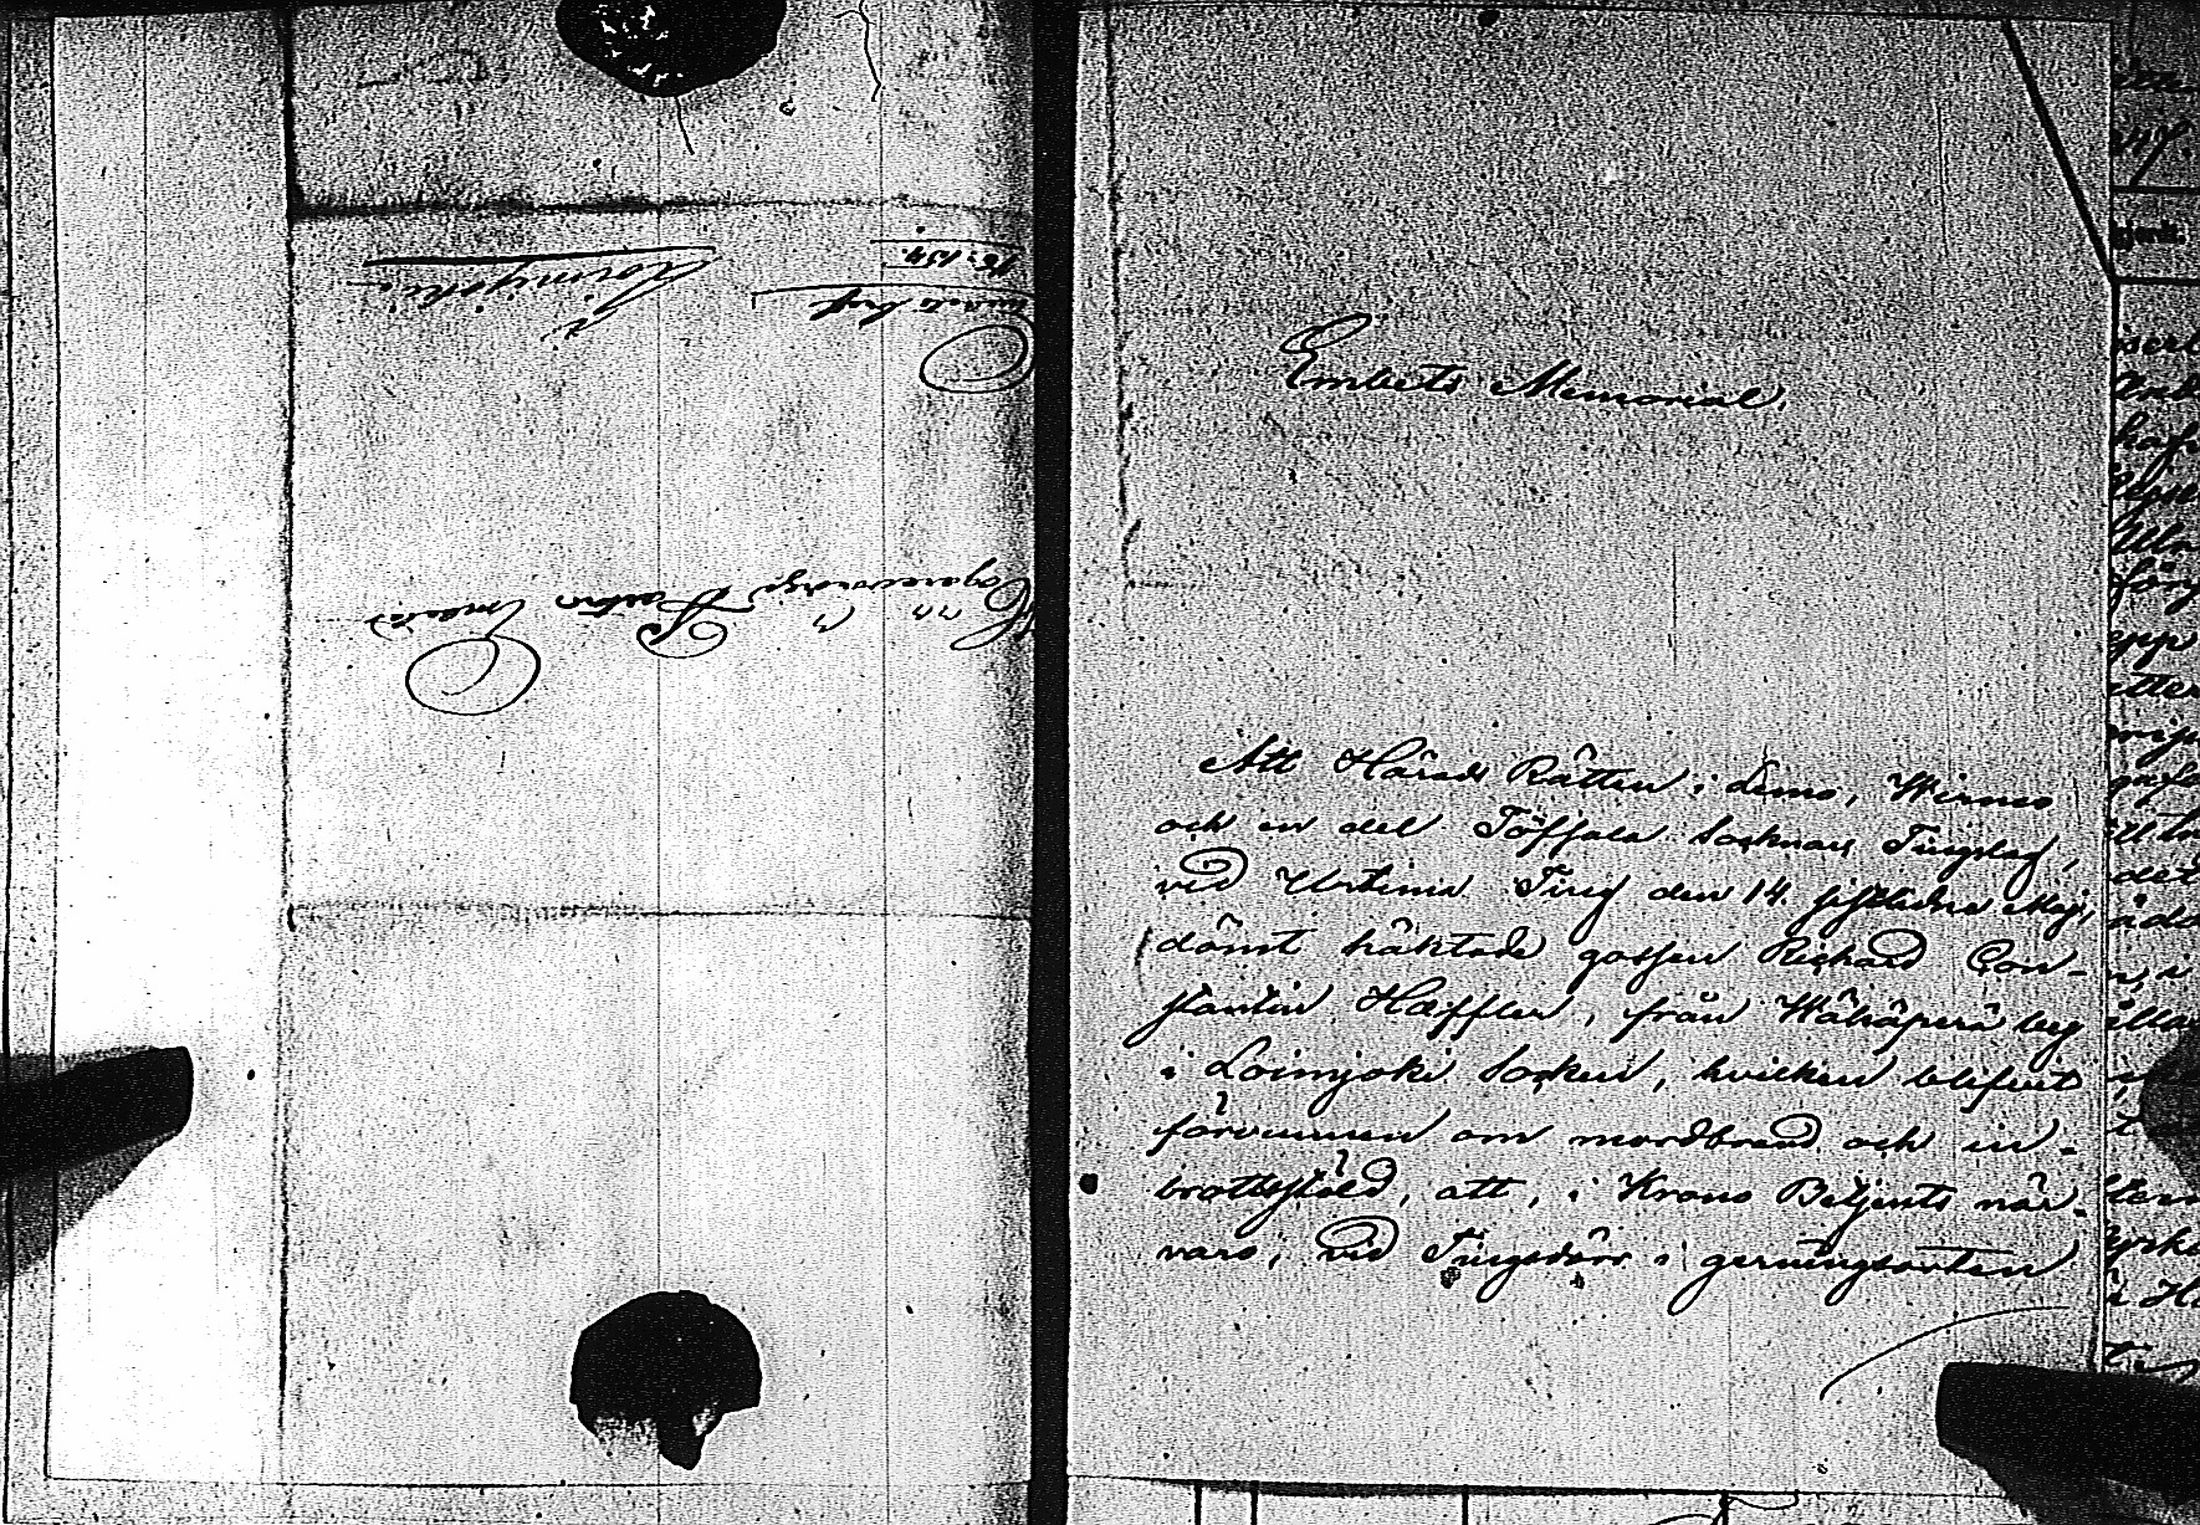 Högvördige Pastors Embetet
i
Loimijoki.
Embets bref
Embets Memorial.
Att Härads Rätten i Lemo, Wirmo
och en del Töfsala Socknars Tingslag,
vid Urtima Ting den 14. sistledne Maj,
dömt häktade gossen Richard Con-
stantin Hæffler, från Wähäperä by
i Loimjoki Socken, hvilken blifvit
förvunnen om mordbrand och in-
brottsstöld, att, i Krono Betjents när-
varo, vid Tingsdörr i gerningsorten